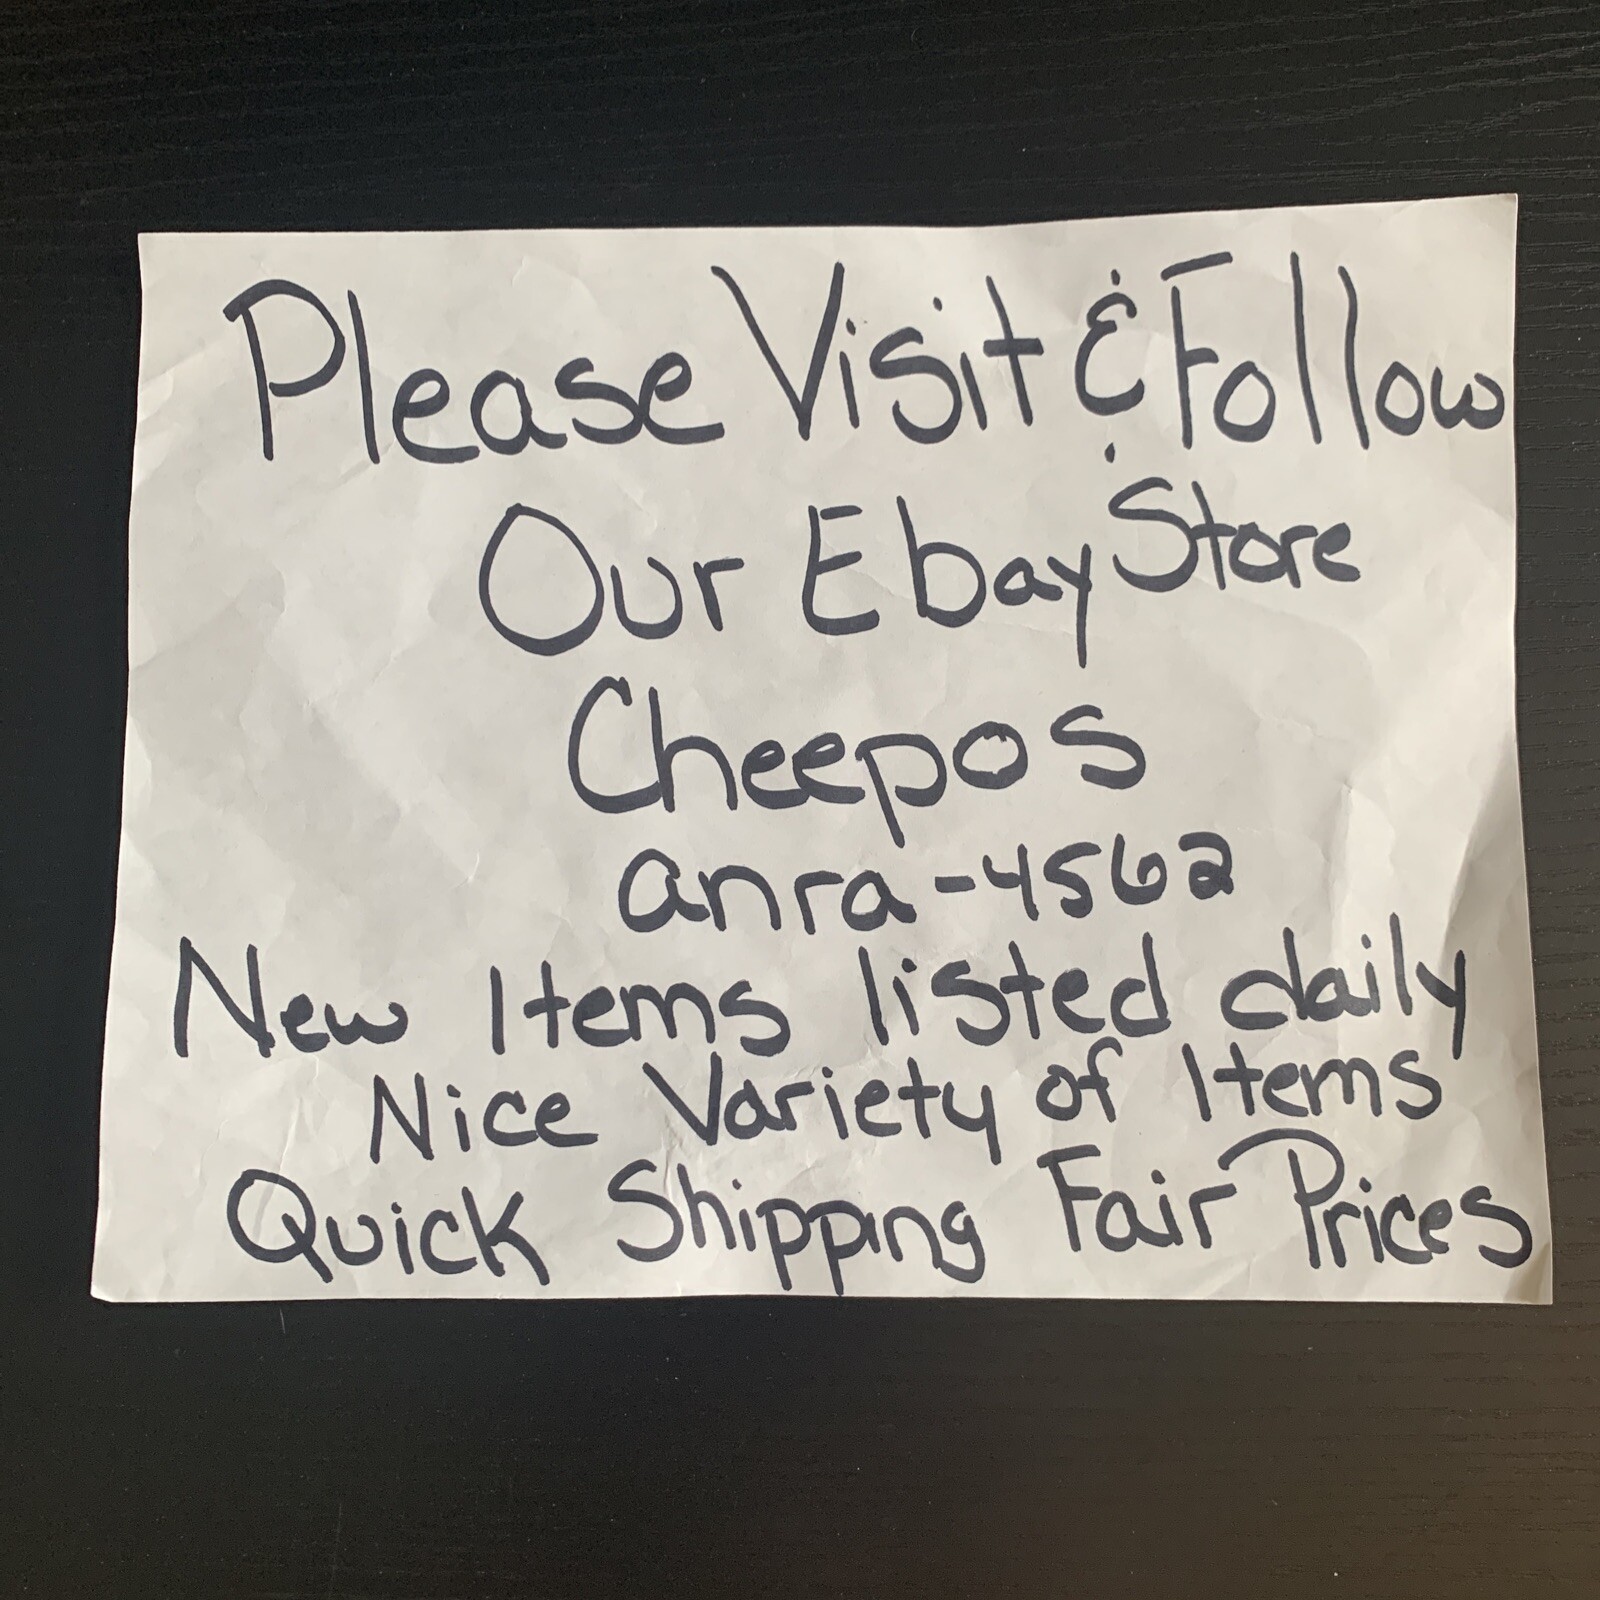 Please Visit & Follow
Our Ebay Store
Cheepos
anra-4562
New Items listed daily
Nice Variety of Items
Quick Shipping Fair Prices